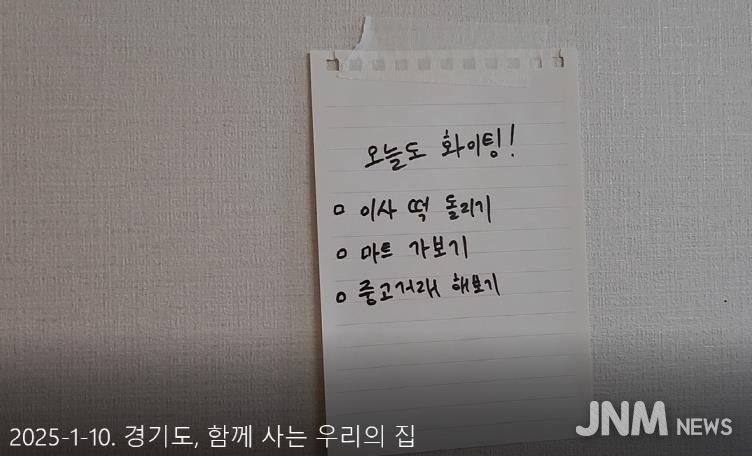 오늘도 화이팅!
□ 이사 떡 돌리기
o 마트 가보기
o 중고거래 해보기
JNM NEWS
2025-1-10. 경기도, 함께 사는 우리의 집